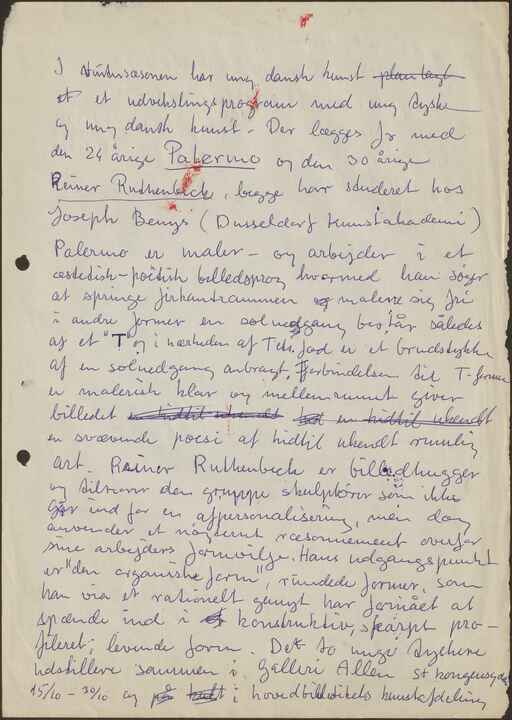 I vintersæsonen har ung dansk kunst planlagt
et et udvekslingsprogram med ung tysk
og ung dansk kunst - Der lægges for med
den 24 årige Palermo og den 30 årige
Reiner Ruthenbeck, begge har studeret hos
Joseph Beuys (Dusseldorf kunstakademi)
Palermo er maler - og arbejder i et
æstetisk-poetisk billedsprog hvormed han søger
at springe firkantrammen og malerne sig fri
i andre former en solnedgang består således
af et "T" og i nærheden af Tets fod er et brudstykke
af en solnedgang anbragt, Forbindelsen til T-formen
er malerisk klar og mellemrummet giver
billedet en hidtil ukendt
en svævende poesi af hidtil ukendt rumlig
art. Reiner Ruthenbeck er billedhugger
og tilhører den gruppe skulptører som ikke
går ind for en afpersonalisering, men dog
anvender et nøgternt ræsonnement overfor
sine arbejders formvilje. Hans udgangspunkt
er "den organiske form", rundede former, som
han via et rationelt greb har formået at
spænde ind i konstruktiv, skarpt pro-
fileret, levende form. De to unge tyskere
udstiller sammen i Galleri Allen St kongensgade
15/10 - 30/10 og på i hovedbibliotekets kunstafdeling